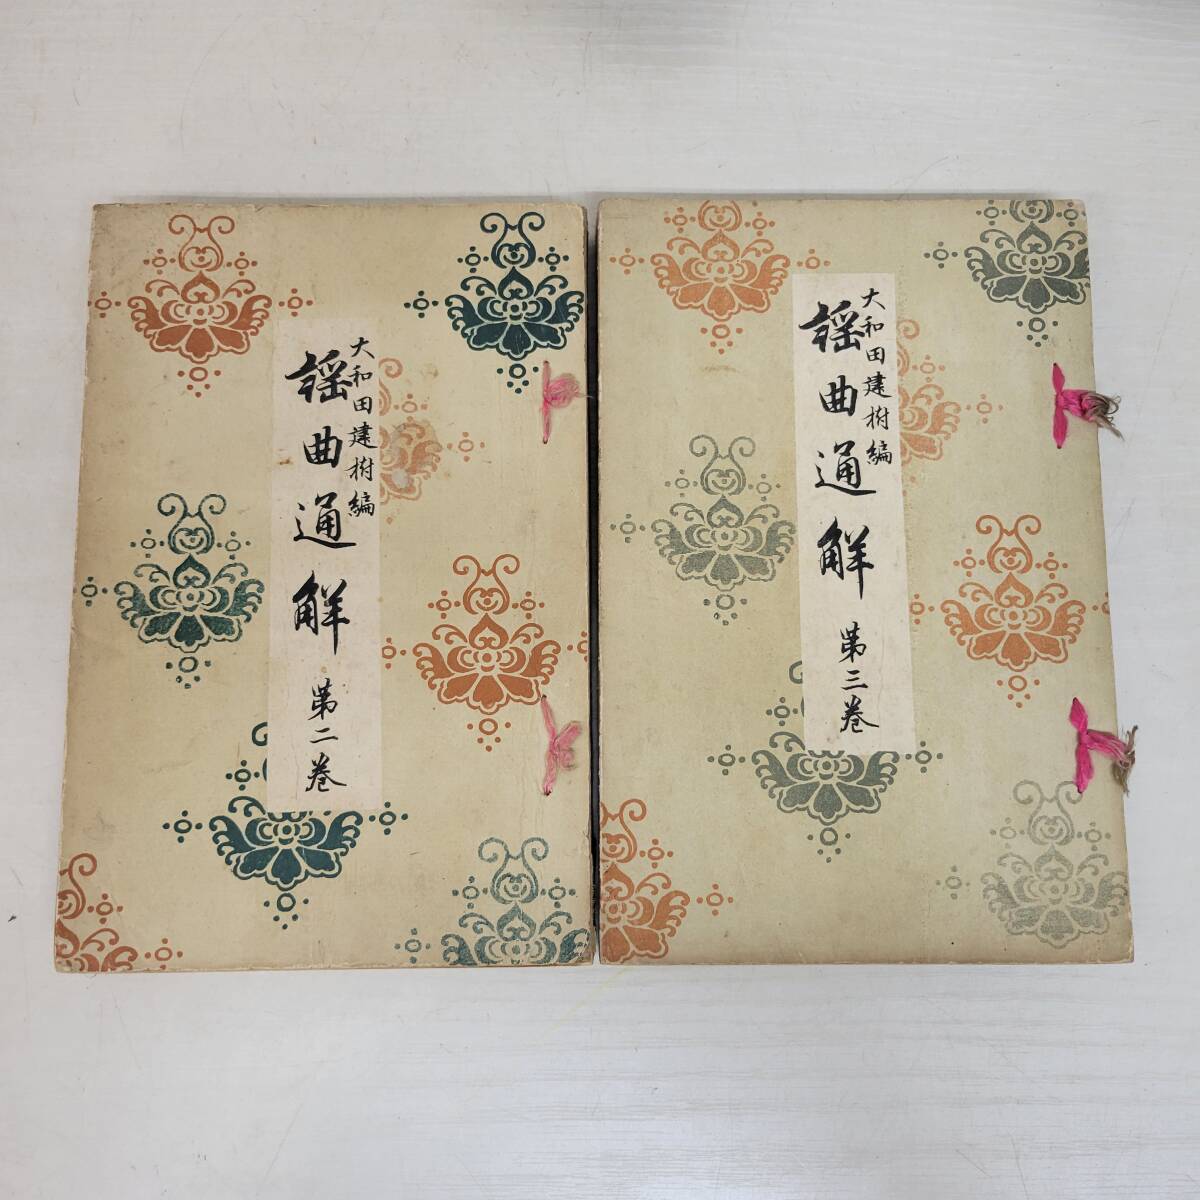 大和田建樹編
謡曲通解 第二巻
大和田建樹編
謡曲通解 第三巻